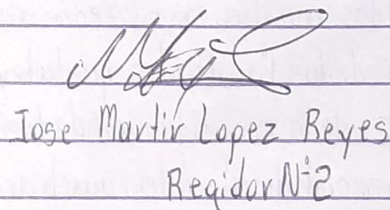 Jose Martir Lopez Reyes
Regidor N-2